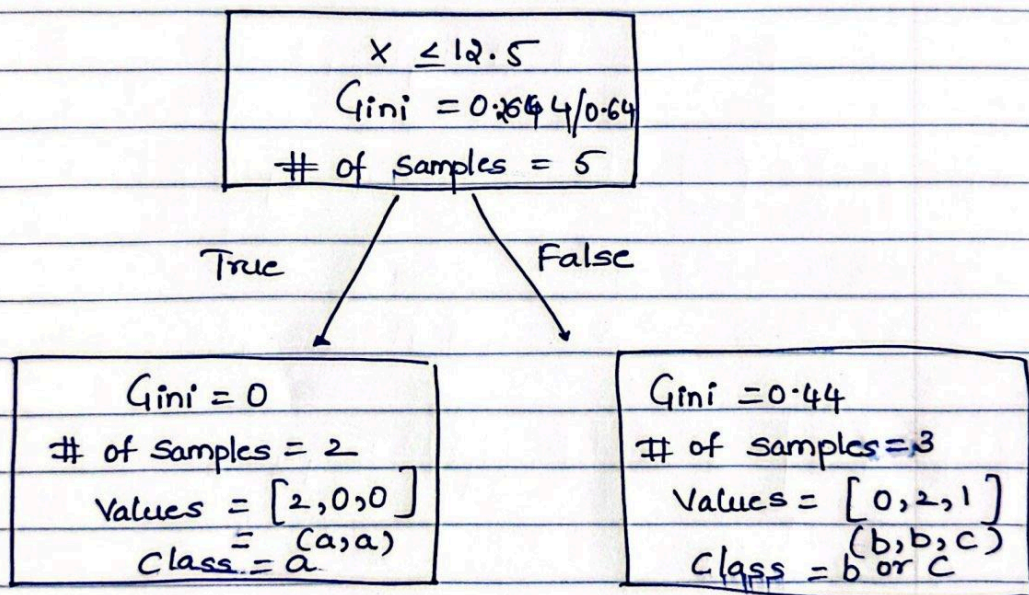 X ≤ 12.5
Gini = 0.264 4/0.64
# of samples = 5
True
False
Gini = 0
# of samples = 2
Values = [2,0,0]
= (a,a)
Class = a
Gini = 0.44
# of samples = 3
Values = [0,2,1]
(b,b,c)
Class = b or c